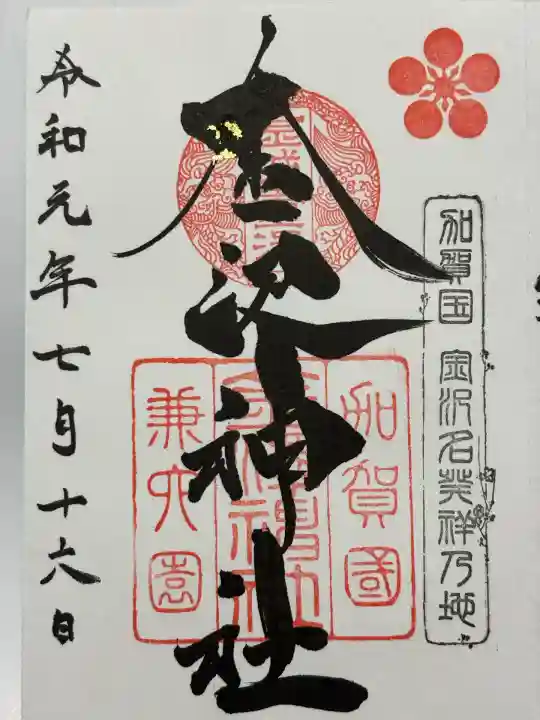 加賀国 金沢名発祥乃地
金沢神社
加賀國
金澤神社
兼六園
令和元年七月十六日